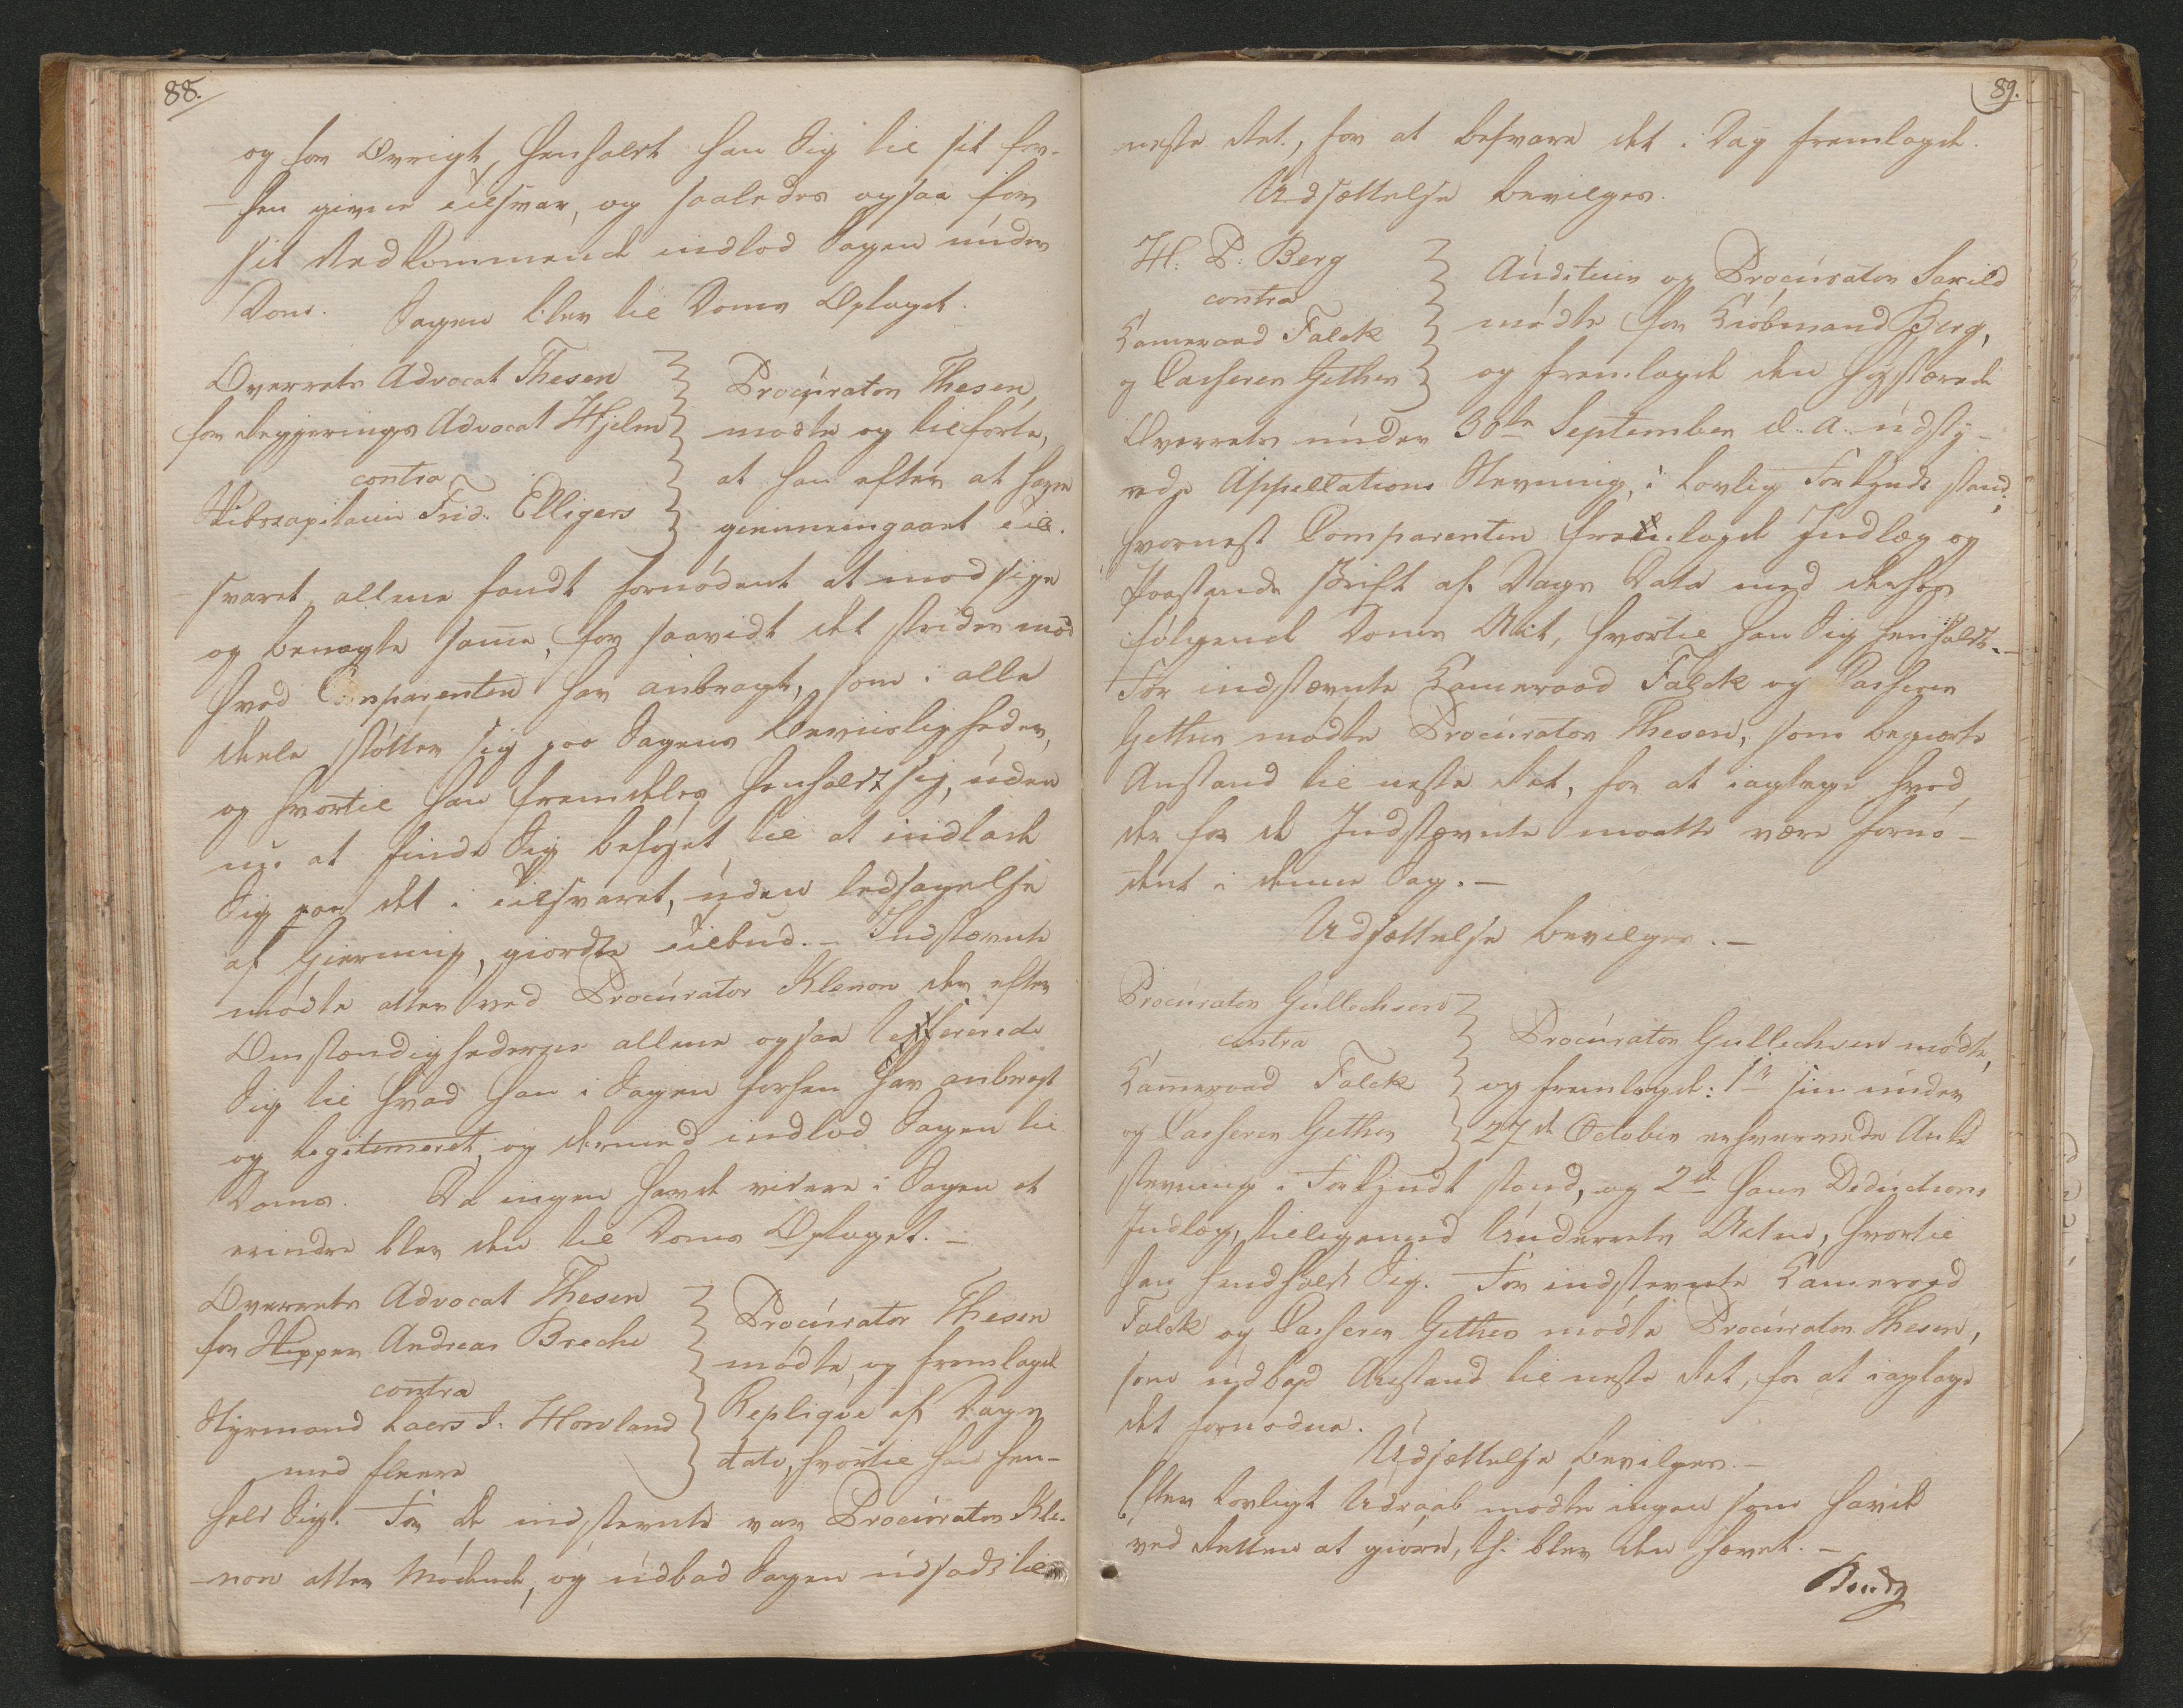 88.
og for Øvrigt, henholdt han Sig til sit for-
hen givne tilsvar, og saaledes ogsaa for
sit Vedkommende indlod Sagen under
Dom. Sagen blev til Doms Optaget.
Overrets Advocat Thesen
for Regjerings Advocat Hjelm
contra
Skibscapitain Frid. Elligers
Procurator Thesen,
mødte og tilførte,
at han efter at have
giennemgaaet til-
svaret, allene fandt fornødent at modsige
og benægte samme, for saavidt det strider mod
hvad Comparenten har anbragt, som i alle
deele støtter sig paa Sagens Beviisligheder,
og hvortil han fremdeles henholdt sig, uden
nu at finde Sig beføyet til at indlade
Sig paa det i tilsvaret, uden ledsagelse
af Gierning, giordte tilbud. – Indstævnte
mødte atter ved Procurator Klenow der efter
Omstændighederne allene ogsaa refererede
Sig til hvad han i Sagen forhen har anbragt
og legitimeret, og dermed indlod Sagen til
Doms. Da ingen havde videre i Sagen at
erindre blev den til Doms Optaget. –
Overrets Advocat Thesen
for Skipper Andreas Breche
contra
Styrmand Laers J. Howland
med fleere
Procurator Thesen
mødte, og fremlagde
Replique af Dags
dato, hvortil han hen-
holdt Sig. For de indstevnte var Procurator Kle-
now atter Mødende, og udbad Sagen udsadt til
89.
neste Ret., for at besvare det i Dag fremlagde.
Udsættelse bevilges.
H. P. Berg
contra
Kameraad Falck
og Casserer Gether
Auditeur og Procurator Saxild
mødte for Kiøbmand Berg,
og fremlagde den høystærede
Overrets under 30te September d. A. udsty-
rede Appellations Stevning, i Lovlig Forkyndt stand,
hvornest Comparenten fremlagde Indlæg og
Paastands skrift af Dags Dato med derhos
følgende Doms Akt, hvortil han Sig henholdt. –
For indstævnte Kameraad Falck og Casserer
Gether mødte Procurator Thesen, som begierte
Anstand til neste Ret, for at iagtage hvad
der for de Indstævnte maatte være fornø-
dent i denne Sag. –
Udsættelse bevilges. –
Procurator Gullichsen
contra
Kammeraad Falck
og Casserer Gether
Procurator Gullichsen mødte,
og fremlagde: 1o sin under
27de October erhvervede Anke
stevning i Forkyndt stand, og 2de hans Deductions
Indlæg, tilligemed Underrets Acten, hvortil
han henholdt Sig. For indstevnte Kameraad
Falck og Casserer Gether mødte Procurator Thesen,
som udbad Anstand til neste Ret, for at iagtage
det fornødne.
Udsættelse bevilges. –
Efter Lovligt Udraab mødte ingen som havde
ved Retten at giøre, thi blev den hævet. –